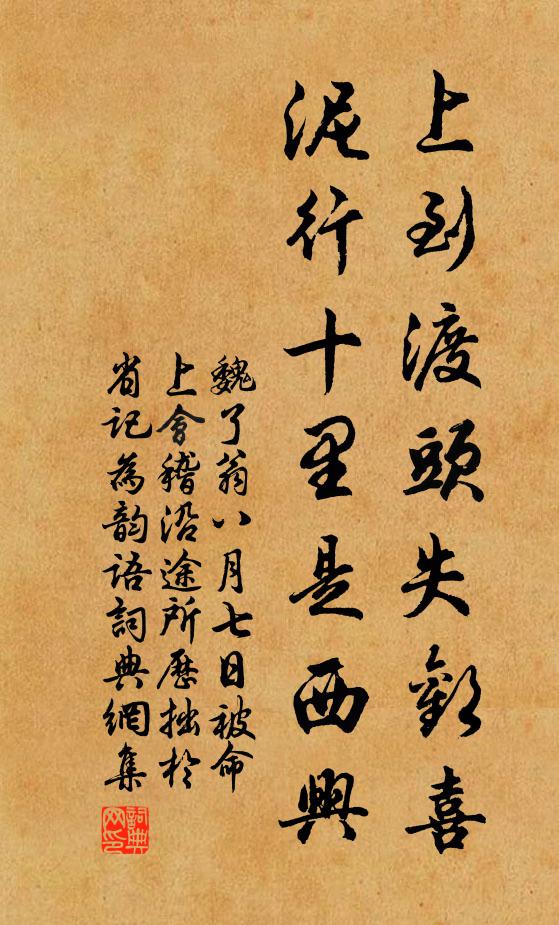 上到渡頭失歡喜
泥行十里是西興
魏了翁八月七日被命
上會稽沿途所歷拙於
省記為韵语詞典網集
詞典网印